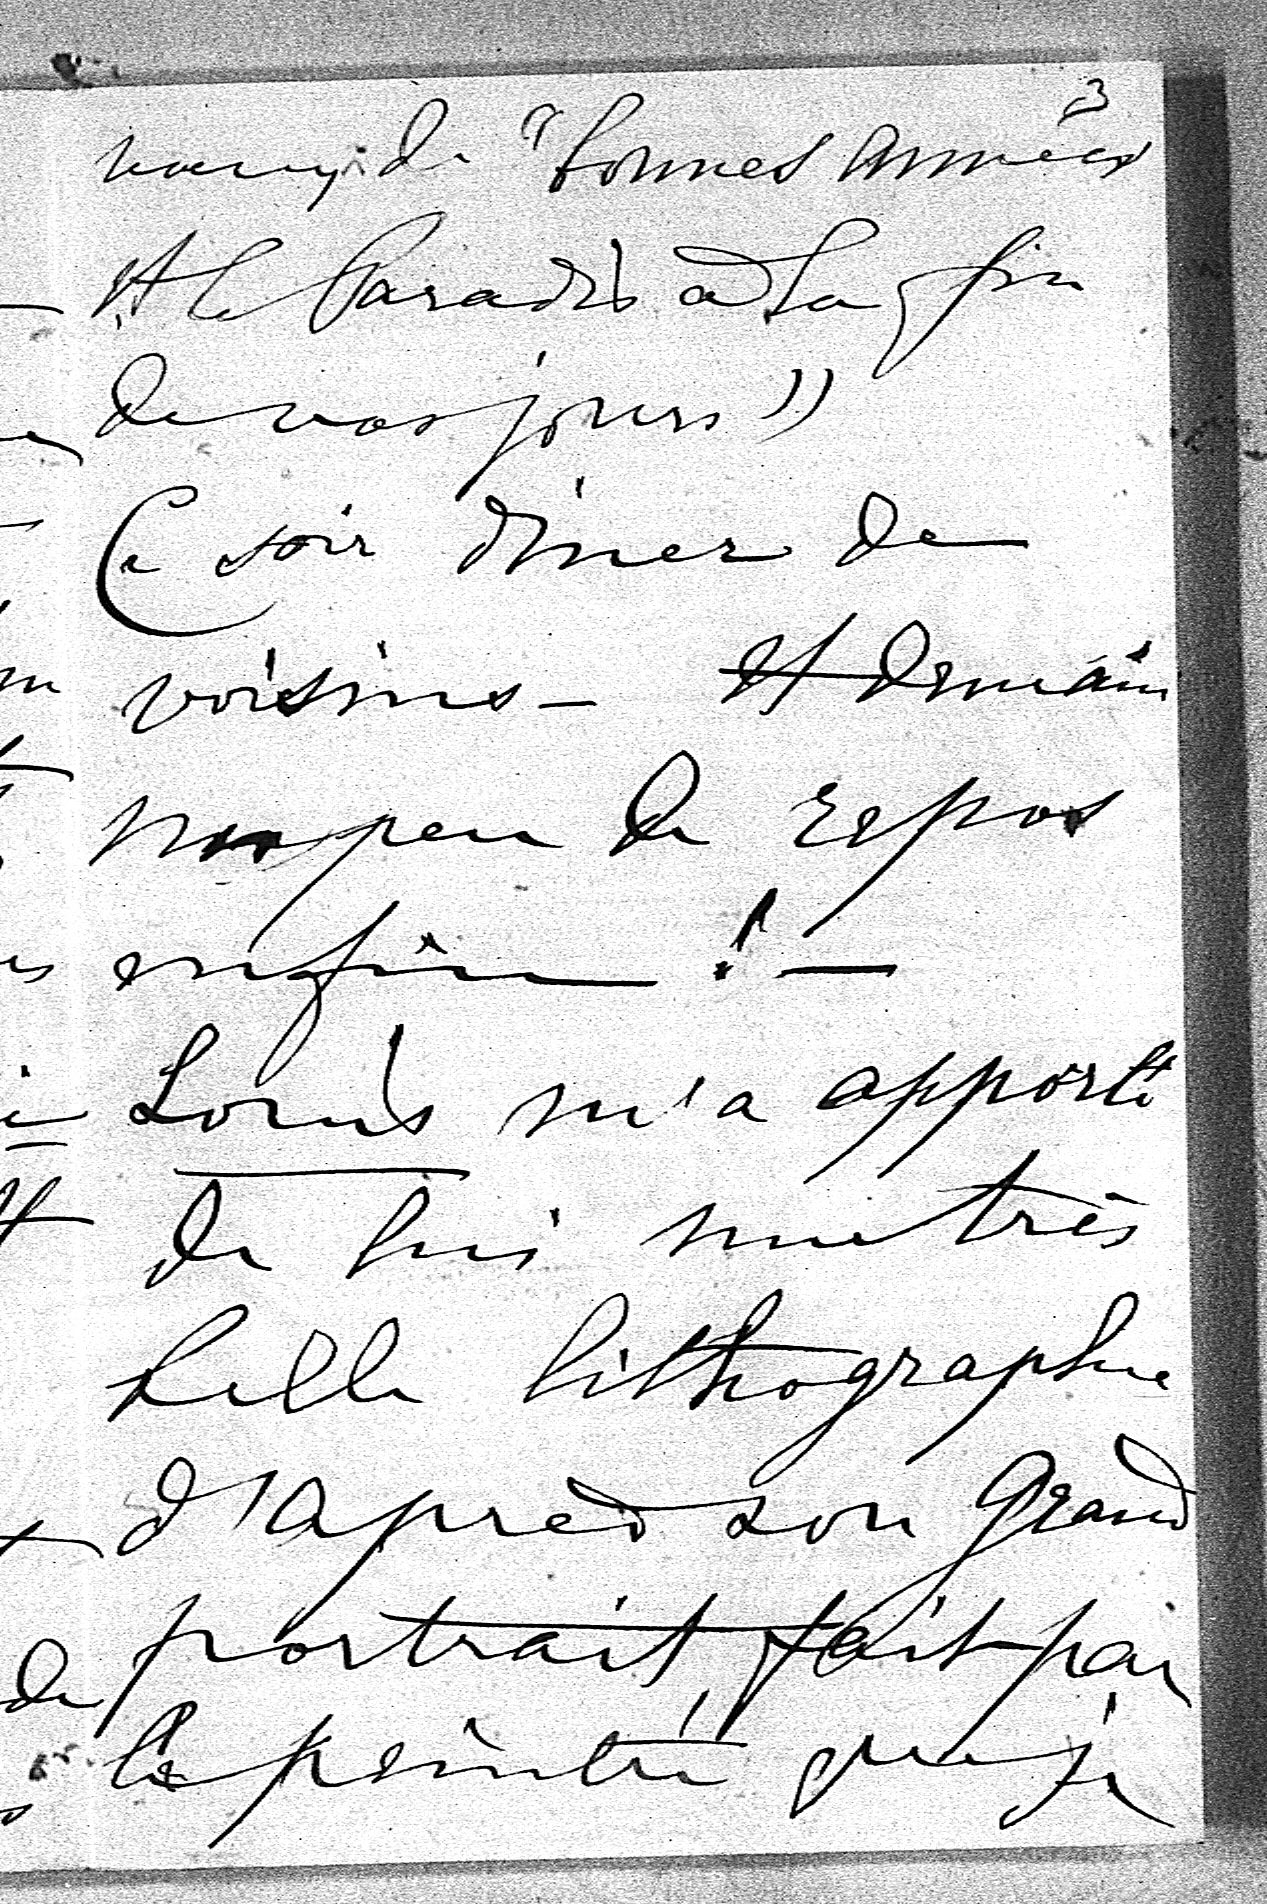 3
de "bonnes années
et le Paradis à la fin
de vos jours"
Ce soir diner de
voisins - et demain
un peu de repos
enfin ! -
Louis m'a apporté
de lui une très
belle lithographie
d'après son grand
portrait fait par
le peintre que je